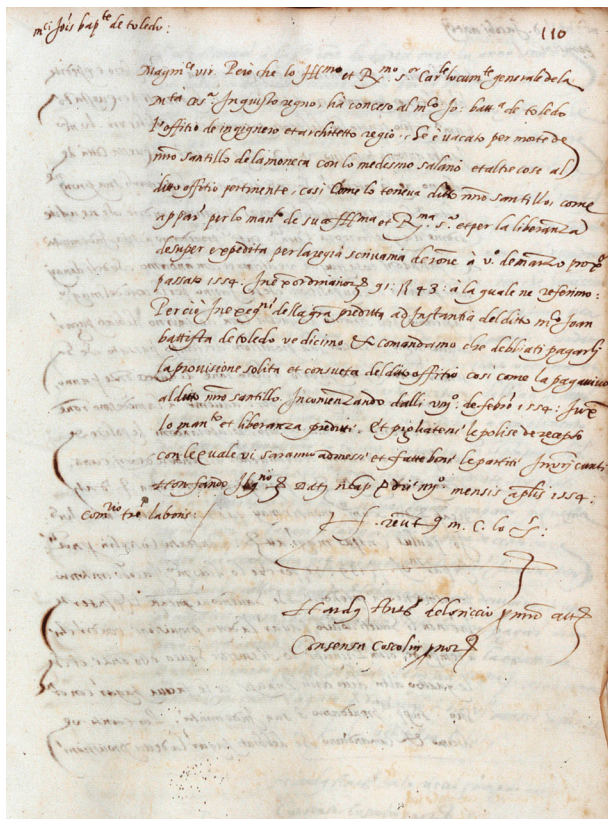 m.ci Jo: bap.te de toledo:
110
Magn.ce vir. Però che lo Ill.mo et R.mo s.or Car.le locum.te generale dela
M.tà Ces.a In questo regno, ha conceso al m.co Jo: batt.a de toledo
l'offitio de ingignero et architetto regio, se è vacato per morte de
m.ro santillo de la moneca con lo medesmo salario et altre cose al
ditto offitio pertinente, cosi come lo teneva ditto m.ro santillo, come
appar per lo man.to de sua Ill.ma et R.ma s.a et per la liberanza
desuper expedita per la regia scrivania de rone à v.o de marzo prox.o
passato 1554. In ordinarior 91: 43: a la quale ne referimo:
Perciò In exeq.ni della gra preditta ad Instantia del ditto m.co Joan
battista de toledo ve dicimo et comandamo che debbiati pagarli
la provisione solita et consueta del ditto offitio cosi come la pagavivo
al ditto m.ro santillo. Incomenzando dalli vıȷ.o de febr.o 1554:
lo man.to et liberanza preditti. Et pigliateni le polise de recepto
con le quale vi saranno admessi et fatte boni le partiti In vri cunti
Datų Neap die mensis aplis 1554:
Com.rio tre laboris:
m. C. lo
delo riccio
Consensu Coscolin